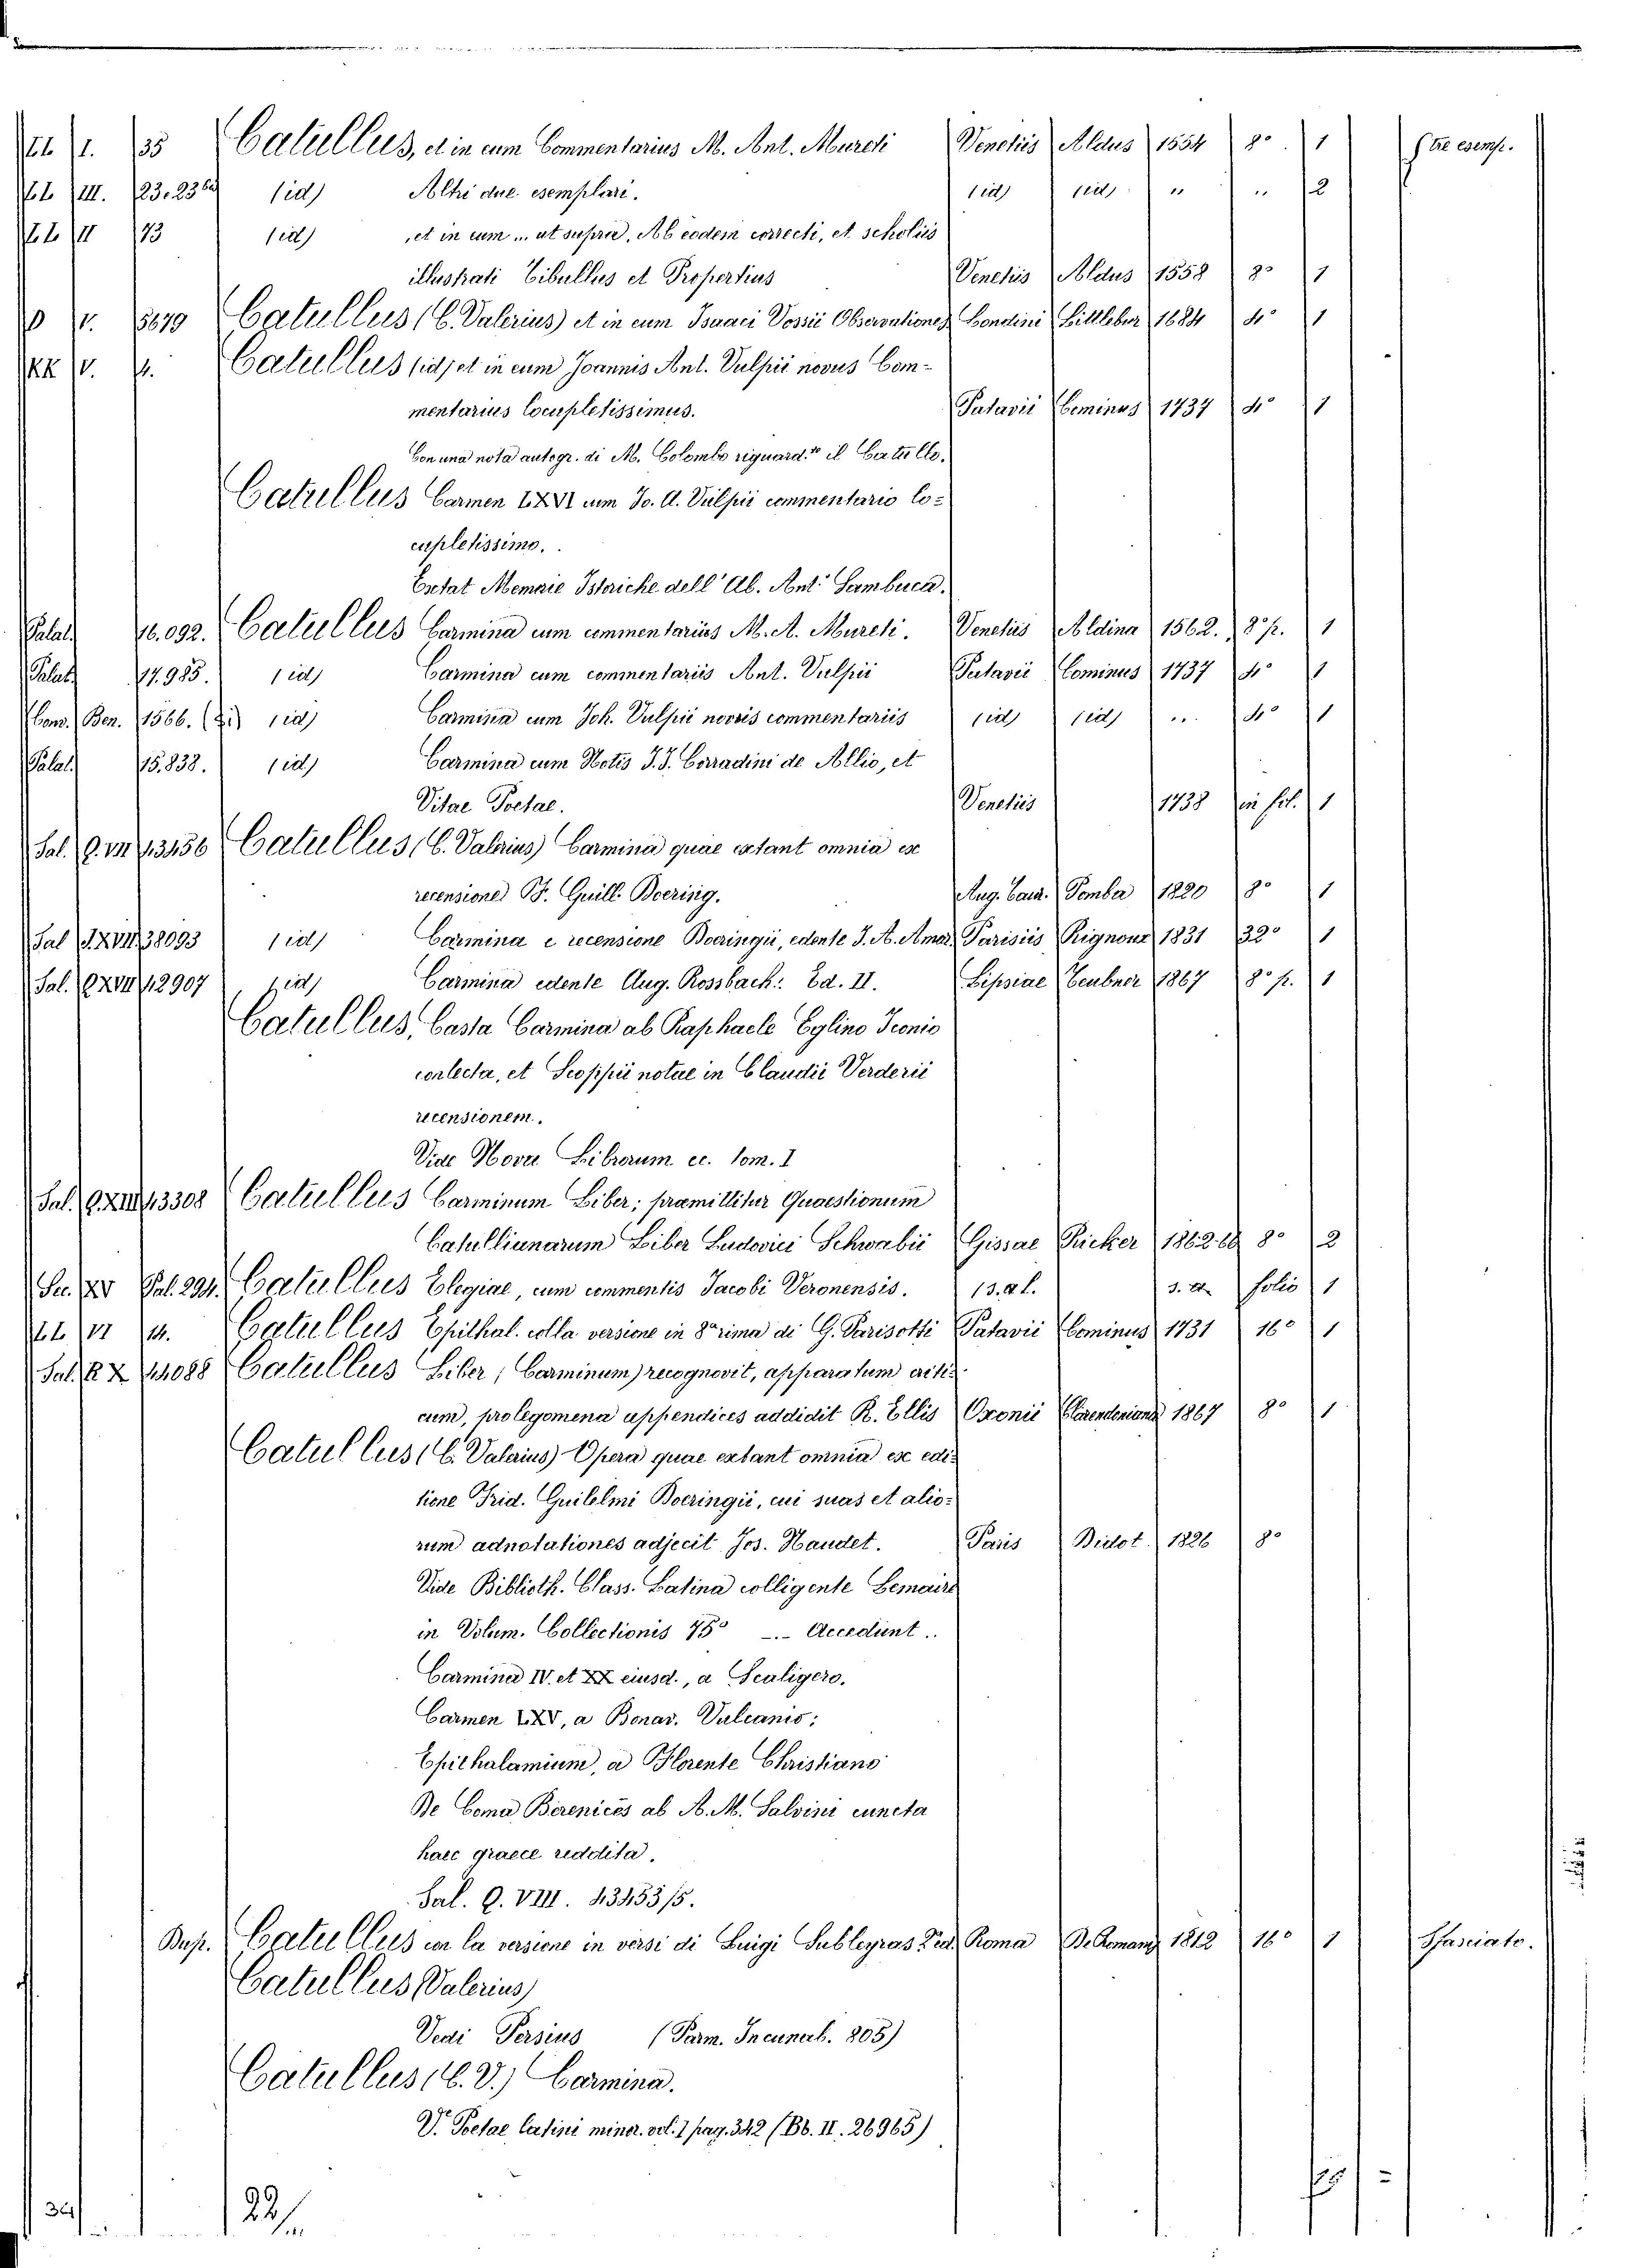 LL I. 35 Catullus, et in eum Commentarius M. Ant. Mureti Venetiis Aldus 1554 8° 1 Tre esemp.
LL III. 23. 23bis (id) Altri due esemplari. (id) (id) " " 2
LL II 73 (id) , et in eum ... ut supra, Ab eodem correcti, et scholiis
illustrati Tibullus et Propertius Venetiis Aldus 1558 8° 1
O V. 5679 Catullus (C. Valerius) et in eum Isaaci Vossii Observationes Londini Littlebur 1684 4° 1
KK V. 4. Catullus (id) et in eum Joannis Ant. Vulpii novus Com-
mentarius locupletissimus. Patavii Cominus 1737 4° 1
Con una nota autogr. di M. Colombo riguard.te il Catullo.
Catullus Carmen LXVI cum Jo. A. Vulpii commentario lo-
cupletissimo.
Exstat Memorie Istoriche dell' Ab. Ant. Sambuca.
Palat. 16.092. Catullus Carmina cum commentariis M. A. Mureti. Venetiis Aldina 1562. 8° p. 1
Palat. 17.985. (id) Carmina cum commentariis Ant. Vulpii Patavii Cominus 1737 4° 1
Cons. Ben. 1566. (id) Carmina cum Joh. Vulpii novis commentariis (id) (id) " 4° 1
Palat. 15.838. (id) Carmina cum Notis J. F. Corradini de Allio, et
Vitae Poetae. Venetiis 1738 in fol. 1
Sal. Q. VIII 43456 Catullus (C. Valerius) Carmina quae extant omnia ex
recensione F. Guill. Doering. Aug. Taur. Pomba 1820 8° 1
Sal. XVII 38093 (id) Carmina e recensione Doeringii, edente J. A. Amar Parisiis Rignoux 1831 32° 1
Sal. Q XVII 42907 (id) Carmina edente Aug. Rossbach: Ed. II. Lipsiae Teubner 1867 8° p. 1
Catullus, Casta Carmina ab Raphaele Eglino Iconio
conlecta, et Scoppii notae in Claudii Verderii
recensionem.
Vide Nova Librorum ec. tom. I
Sal. Q. XIII 43308 Catullus Carminum Liber; praemittitur Quaestionum
Catullianarum Liber Ludovici Schwabii Gissae Ricker 1862-66 8° 2
Sec. XV Pal. 294. Catullus Elegiae, cum commentis Jacobi Veronensis. (s. a. l. s. a. folio 1
LL VI 14. Catullus Epithal. colla versione in 8.a rima di G. Parisotti Patavii Cominus 1731 16° 1
Sal. R X 44088 Catullus Liber (Carminum) recognovit, apparatum criti-
cum, prolegomena appendices addidit R. Ellis Oxonii Clarendoniano 1867 8° 1
Catullus (C. Valerius) Opera quae extant omnia ex edi-
tione Frid. Guilelmi Doeringii, cui suas et alio-
rum adnotationes adjecit Jos. Naudet. Paris Didot 1826 8°
Vide Biblioth. Class. Latina colligente Lemaire
in Volum. Collectionis 75° -.- Accedunt..
Carmina IV. et XX eiusd., a Scaligero.
Carmen LXV, a Bonav. Vulcanio;
Epithalamium, a Florente Christiano
De Coma Berenices ab A. M. Salvini cuncta
haec graece reddita.
Sal. Q. VIII. 43453/5.
Dup. Catullus con la versione in versi di Luigi Subleyras Roma De Romanis 1812 16° 1 Sfasciato.
Catullus (Valerius)
Vedi Persius (Parm. Incunab. 805)
Catullus (C. V.) Carmina.
V. Poetae latini minor. vol. I pag. 342 (Bb. II. 26965)
22